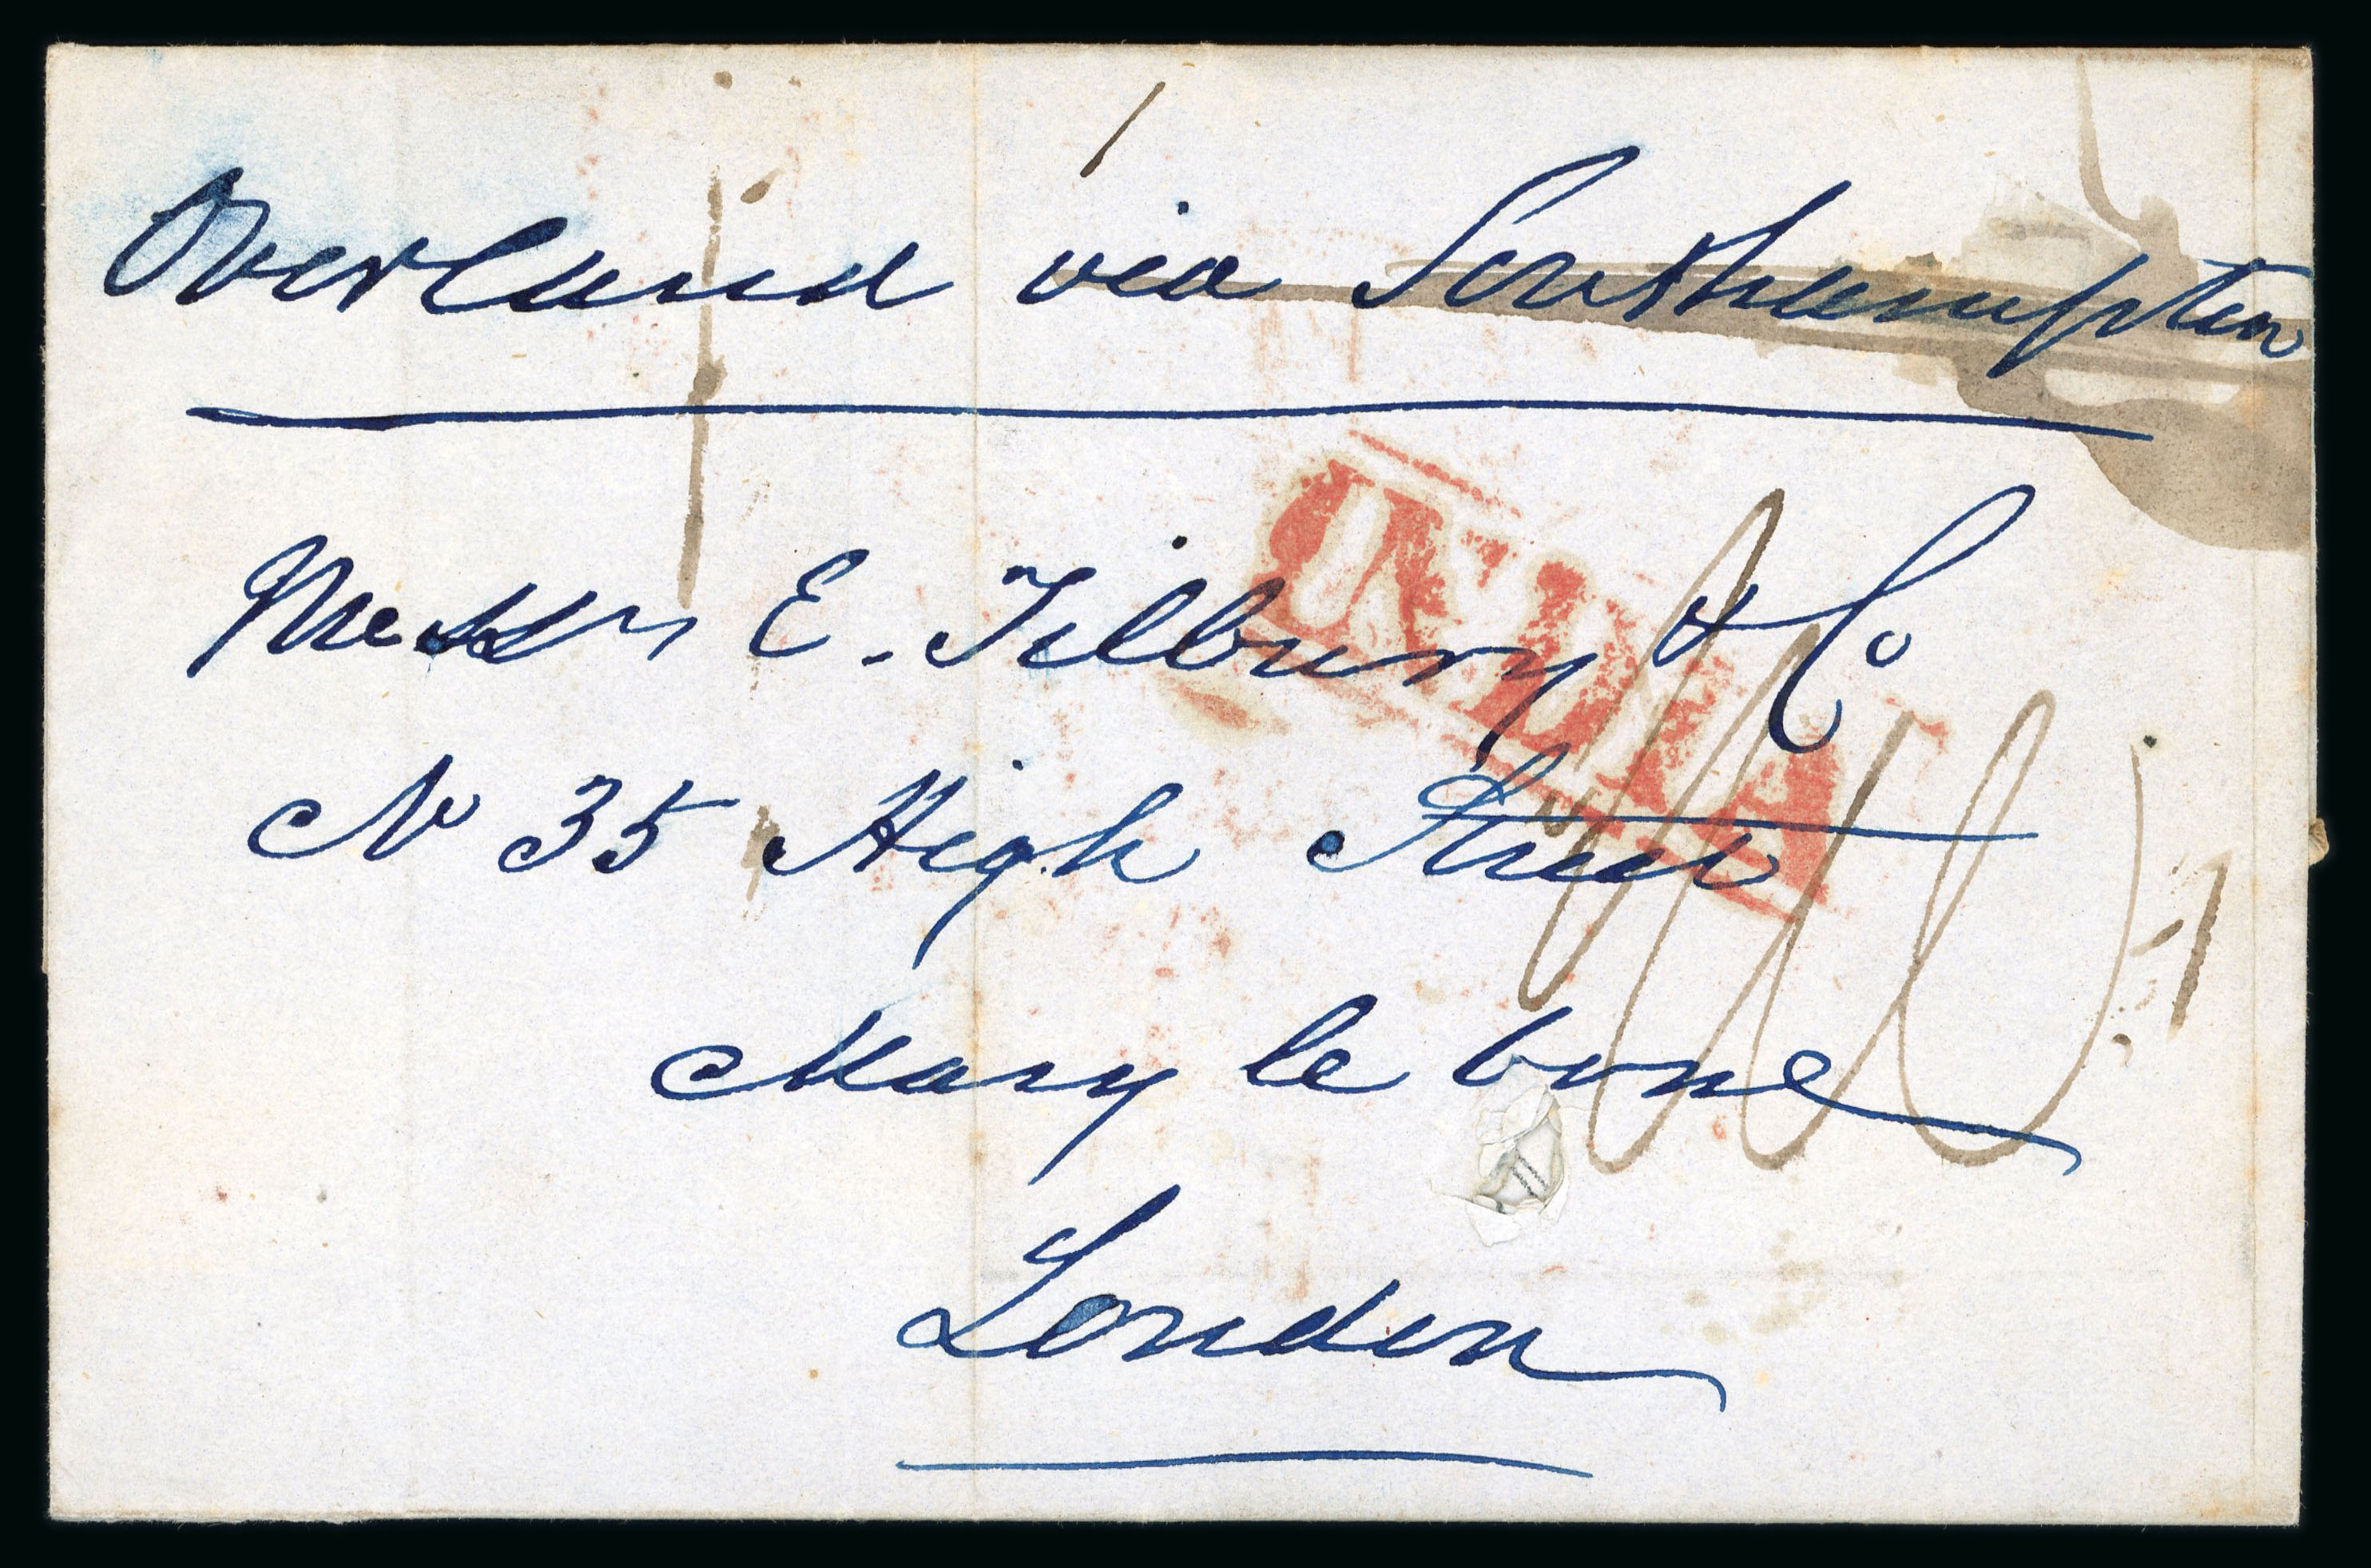 Overland via Southampton
INDIA
Messrs E. Tilbury & Co
No 35 High Street
Mary le bone
London